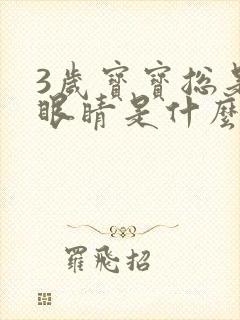 3歲寶寶總是
眼睛是什麼
羅飛招